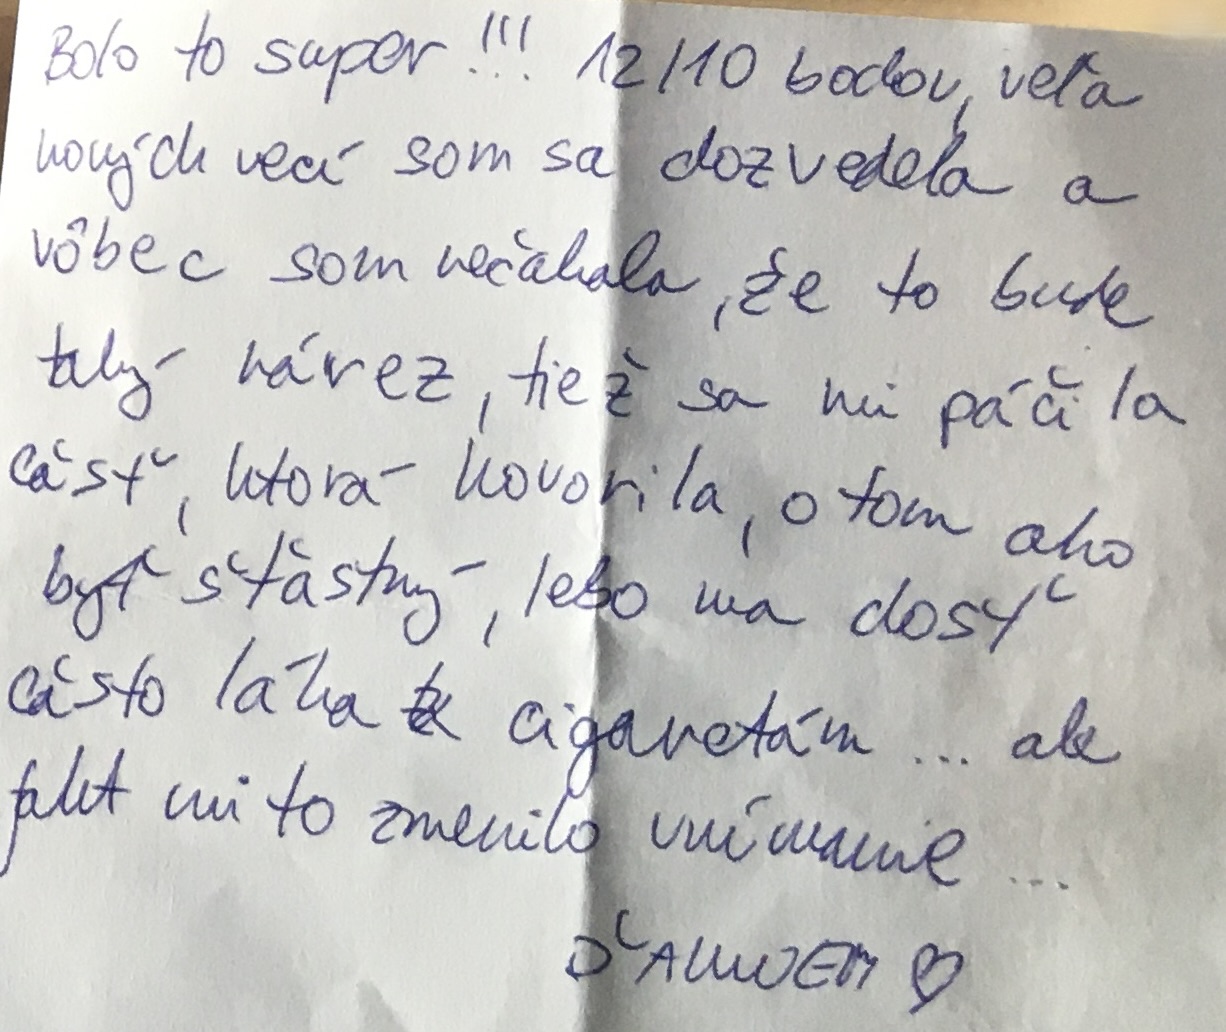 Bolo to super!!! 12/10 bodov, veľa
nových vecí som sa dozvedela a
vôbec som nečakala, že to bude
taký nárez, tiež sa mi páčila
časť, ktorá hovorila, o tom ako
byť šťastný, lebo ma dosť
často láka k cigaretám... ale
fakt mi to zmenilo vnímanie...
ĎAKUJEM ♡